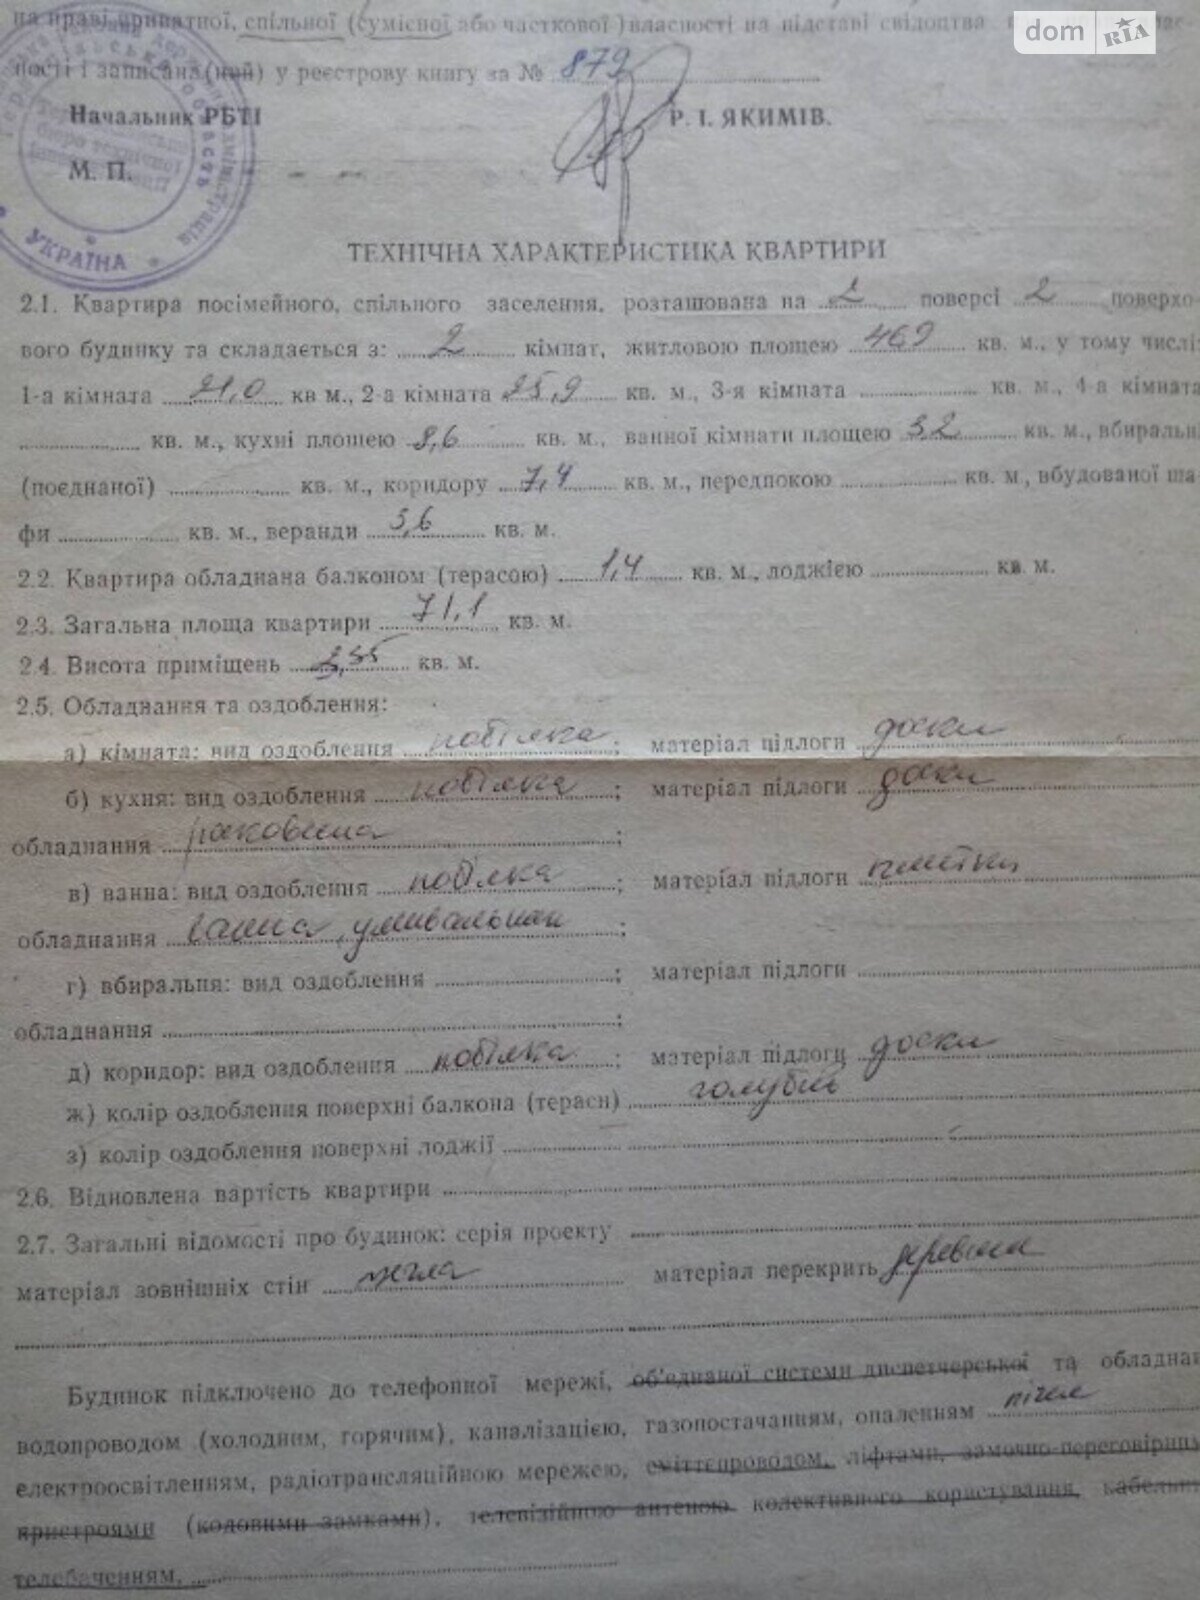 dom RIA
на праві приватної, спільної (сумісної або часткової) власності на підставі свідоцтва
ності і записана (ний) у реєстрову книгу за № 879
Начальник РБТІ Р. І. ЯКИМІВ.
М. П.
УКРАЇНА
ТЕХНІЧНА ХАРАКТЕРИСТИКА КВАРТИРИ
2.1. Квартира посімейного, спільного заселення, розташована на 2 поверсі 2 поверхо-
вого будинку та складається з: 2 кімнат, житловою площею 46,9 кв. м., у тому числі:
1-а кімната 21,0 кв м., 2-а кімната 25,9 кв. м., 3-я кімната кв. м., 4-а кімната
кв. м., кухні площею 8,6 кв. м., ванної кімнати площею 3,2 кв. м., вбиральні
(поєднаної) кв. м., коридору 7,4 кв. м., передпокою кв. м., вбудованої ша-
фи кв. м., веранди 3,6 кв. м.
2.2. Квартира обладнана балконом (терасою) 1,4 кв. м., лоджією кв. м.
2.3. Загальна площа квартири 71,1 кв. м.
2.4. Висота приміщень кв. м.
2.5. Обладнання та оздоблення:
а) кімната: вид оздоблення побілка; матеріал підлоги доски
б) кухня: вид оздоблення побілка; матеріал підлоги доски
обладнання раковина;
в) ванна: вид оздоблення побілка; матеріал підлоги плитки
обладнання ванна, умивальник;
г) вбиральня: вид оздоблення ; матеріал підлоги
обладнання ;
д) коридор: вид оздоблення побілка; матеріал підлоги доски
ж) колір оздоблення поверхні балкона (тераси) голубий
з) колір оздоблення поверхні лоджії
2.6. Відновлена вартість квартири
2.7. Загальні відомості про будинок: серія проекту
матеріал зовнішніх стін цегла матеріал перекрить деревяні
Будинок підключено до телефонної мережі, об'єднаної системи диспетчерської та обладнан
водопроводом (холодним, горячим), каналізацією, газопостачанням, опаленням пічне
електроосвітленням, радіотрансляційною мережею, сміттєпроводом, ліфтами, замочно-переговірним
пристроями (кодовими замками), телевізійною антеною колективного користування, кабельн
телебаченням,